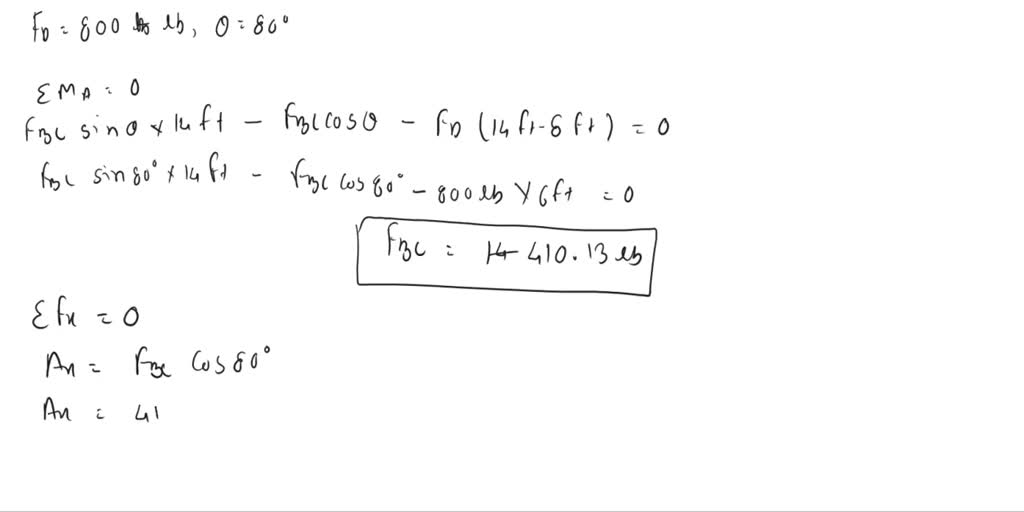 F_D = 800 lb, θ = 80°
ΣM_A = 0
F_BC sinθ × 14 ft - F_BC cosθ - F_D (14 ft - 8 ft) = 0
F_BC sin 80° × 14 ft - F_BC cos 80° - 800 lb × 6 ft = 0
F_BC = 410.13 lb
ΣFx = 0
Ax = F_BC cos 80°
Ax = 41